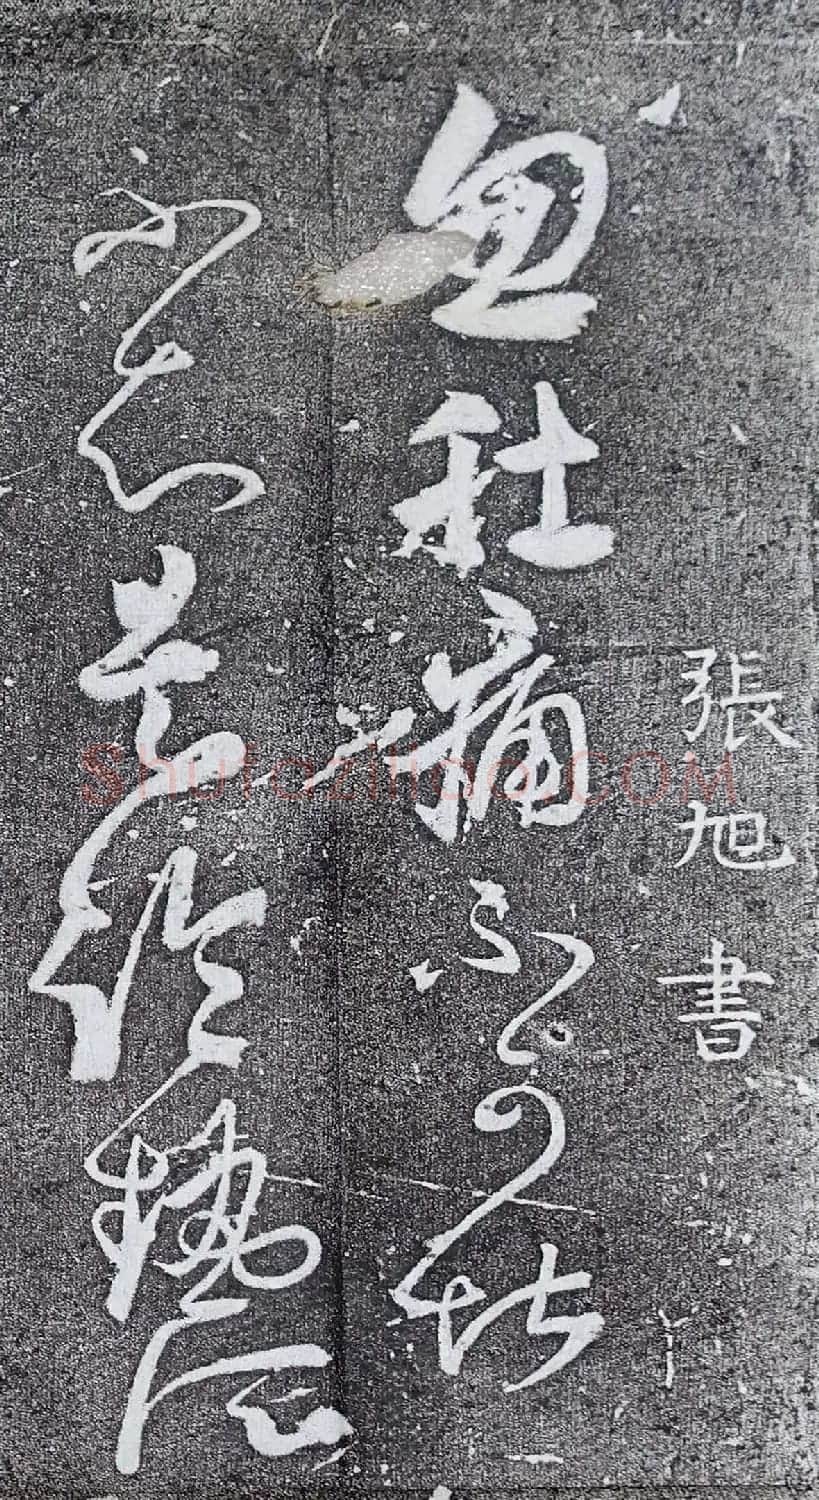 張旭書
忽肚痛不可堪
不知是冷熱所
Shufaziliao.COM